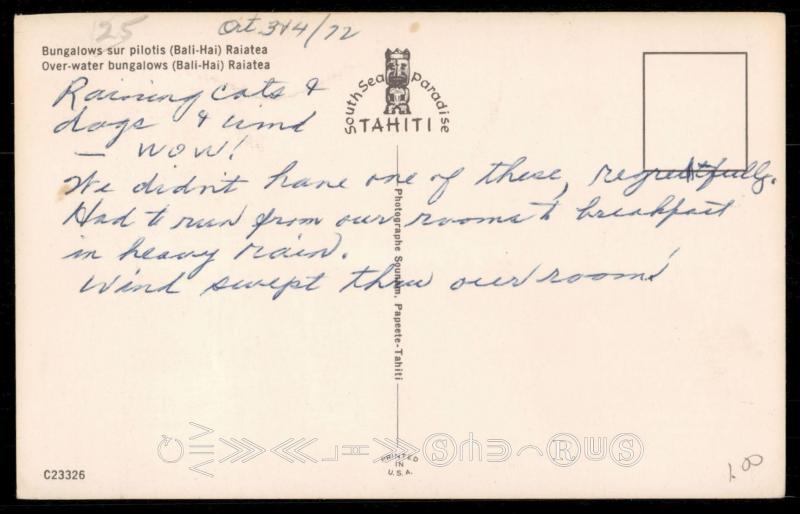 25
Oct. 3 & 4/72
Bungalows sur pilotis (Bali-Hai) Raiatea
Over-water bungalows (Bali-Hai) Raiatea
South Sea Paradise
TAHITI
Raining cats &
dogs & wind
— WOW!
We didn't have one of these, regretfully.
Had to run from our rooms to breakfast
in heavy rain.
Wind swept thru our room!
Photographe Sounam, Papeete-Tahiti
C23326
PRINTED
IN
U.S.A.
1.00